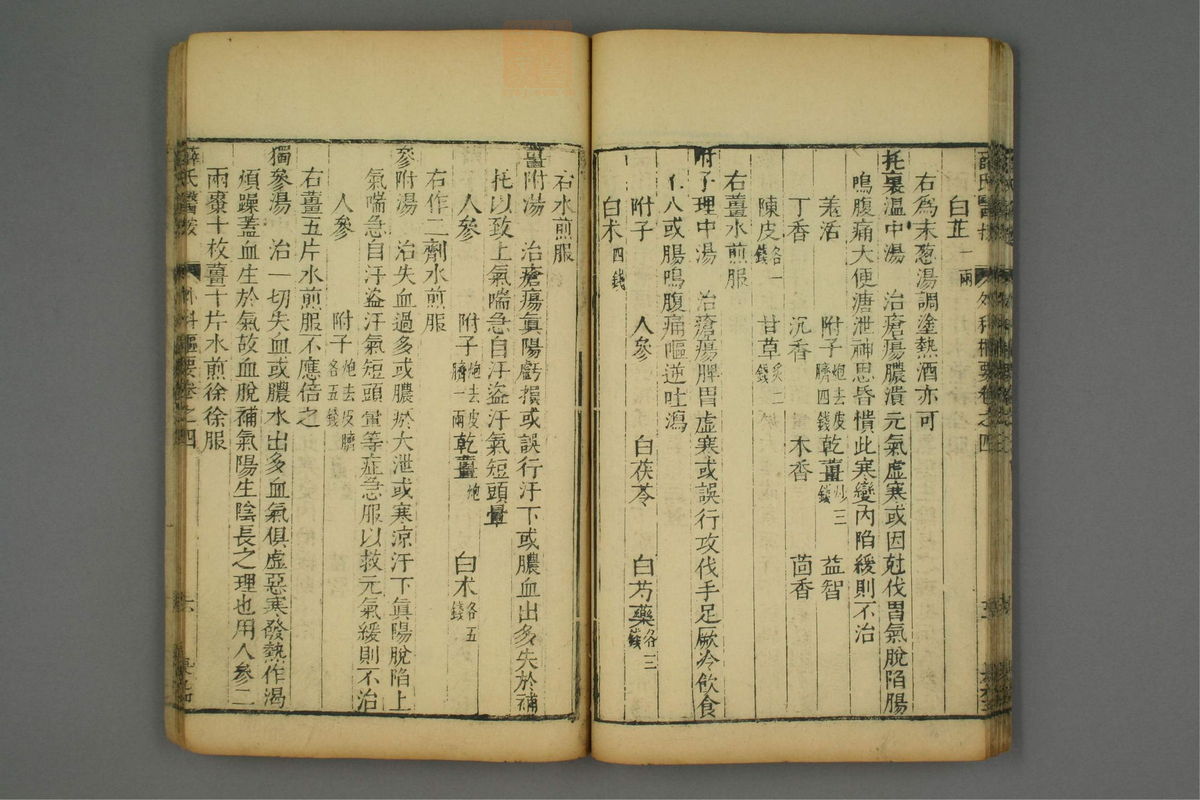 白芷一兩
右爲末葱湯調塗熱酒亦可
托裏温中湯 治瘡瘍膿潰元氣虛寒或因尅伐胃氣脫陷腸
鳴腹痛大便溏泄神思昏憒此寒變內陷緩則不治
羗活 附子炮去皮臍四錢 乾薑炒三錢 益智
丁香 沉香 木香 茴香
陳皮各一錢 甘草炙二錢
右薑水煎服
附子理中湯 治瘡瘍脾胃虛寒或誤行攻伐手足厥冷飲食
不入或腸鳴腹痛嘔逆吐瀉
附子 人參 白茯苓 白芍藥各三錢
白朮四錢
右水煎服
薑附湯 治瘡瘍眞陽虧損或誤行汗下或膿血出多失於補
托以致上氣喘急自汗盜汗氣短頭暈
人參 附子炮去皮臍一兩 乾薑炮 白朮各五錢
右作二劑水煎服
參附湯 治失血過多或膿瘀大泄或寒凉汗下眞陽脫陷上
氣喘急自汗盜汗氣短頭暈等症急服以救元氣緩則不治
人參 附子炮去皮臍各五錢
右薑五片水煎服不應倍之
獨參湯 治一切失血或膿水出多血氣俱虛惡寒發熱作渴
煩躁蓋血生於氣故血脫補氣陽生陰長之理也用人參二
兩棗十枚薑十片水煎徐徐服
薛氏醫按 外科樞要卷之四 六